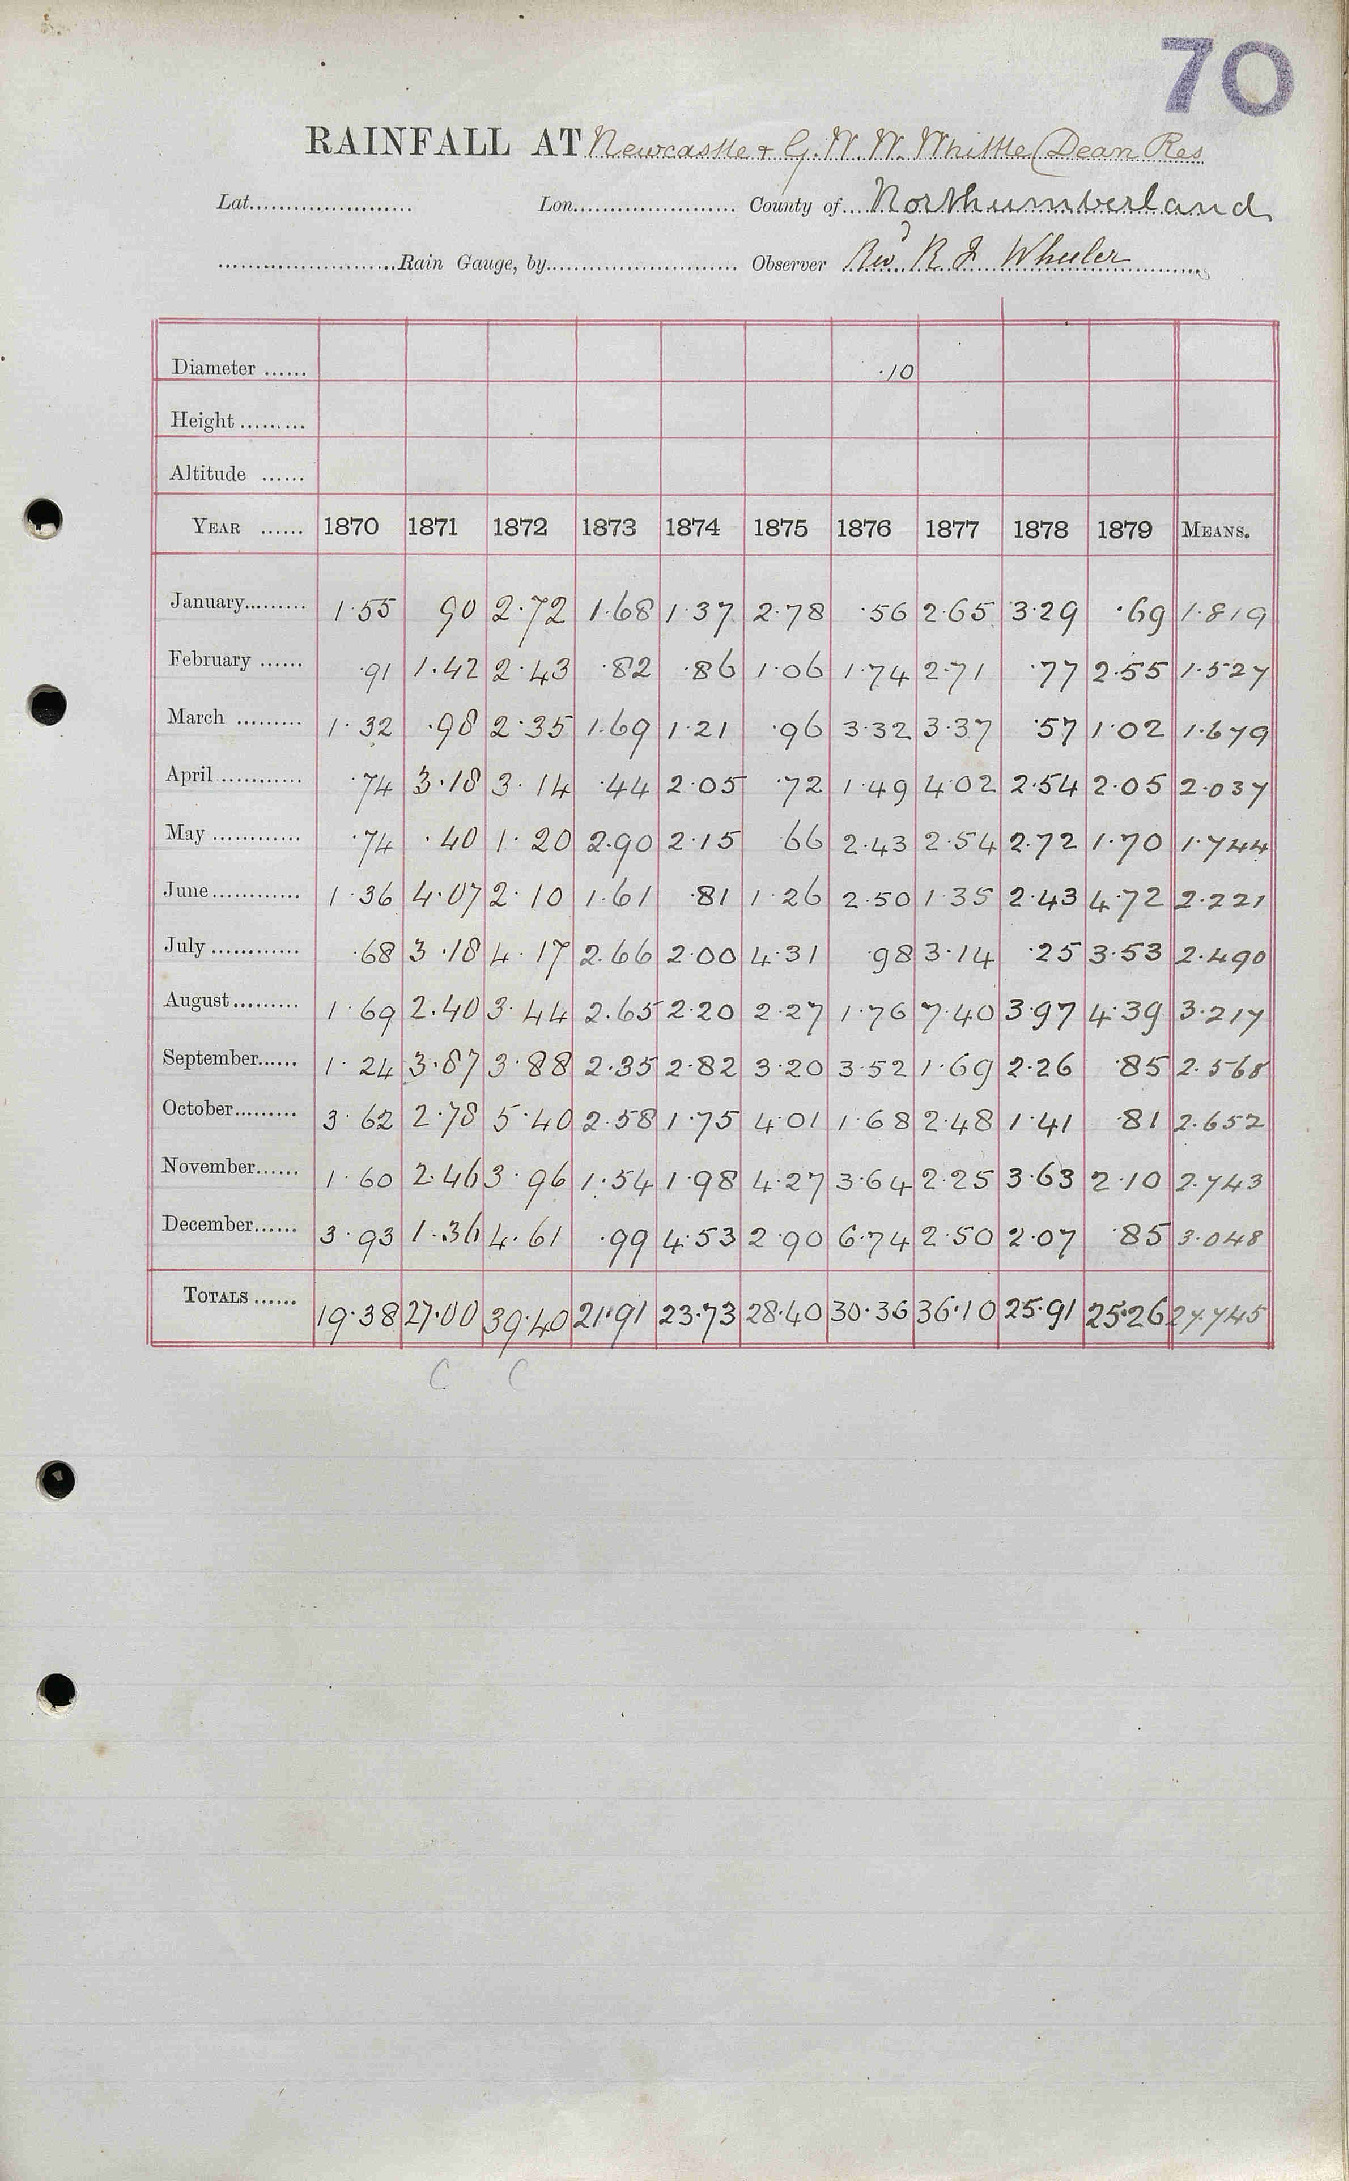 70
RAINFALL AT Newcastle & G. W. W. Whittle (Dean Res
Lat...................... Lon...................... County of... Northumberland
........................Rain Gauge, by.......................... Observer Revd R J Wheeler
Diameter ...... ·10
Height .........
Altitude ......
YEAR ...... 1870 1871 1872 1873 1874 1875 1876 1877 1878 1879 MEANS.
January......... 1·55 90 2·72 1·68 1·37 2·78 ·56 2·65 3·29 ·69 1·819
February ...... ·91 1·42 2·43 ·82 ·86 1·06 1·74 2·71 ·77 2·55 1·527
March ......... 1·32 ·98 2·35 1·69 1·21 ·96 3·32 3·37 ·57 1·02 1·679
April ............ ·74 3·18 3·14 ·44 2·05 ·72 1·49 4·02 2·54 2·05 2·037
May ............ ·74 ·40 1·20 2·90 2·15 ·66 2·43 2·54 2·72 1·70 1·744
June............ 1·36 4·07 2·10 1·61 ·81 1·26 2·50 1·35 2·43 4·72 2·221
July ............ ·68 3·18 4·17 2·66 2·00 4·31 ·98 3·14 ·25 3·53 2·490
August ......... 1·69 2·40 3·44 2·65 2·20 2·27 1·76 7·40 3·97 4·39 3·217
September...... 1·24 3·87 3·88 2·35 2·82 3·20 3·52 1·69 2·26 ·85 2·568
October......... 3·62 2·78 5·40 2·58 1·75 4·01 1·68 2·48 1·41 ·81 2·652
November...... 1·60 2·46 3·96 1·54 1·98 4·27 3·64 2·25 3·63 2·10 2·743
December...... 3·93 1·36 4·61 ·99 4·53 2·90 6·74 2·50 2·07 ·85 3·048
TOTALS ...... 19·38 27·00 39·40 21·91 23·73 28·40 30·36 36·10 25·91 25·26 27·745
C C